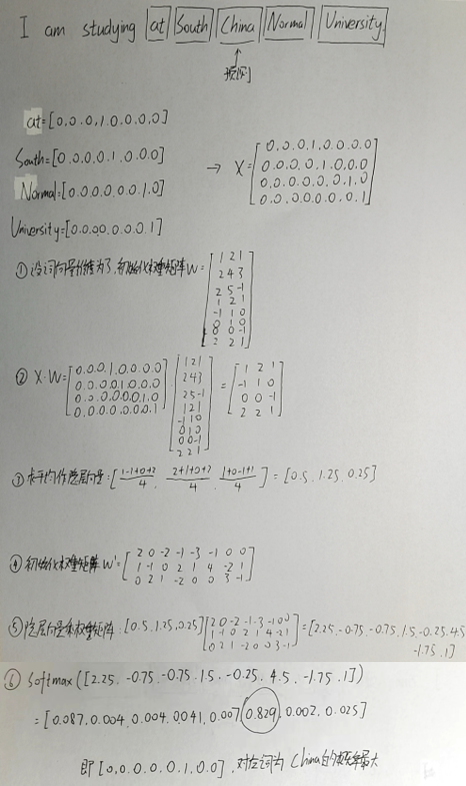 I am studying at South China Normal University.
预测
at=[0.0.0.1.0.0.0.0]
South=[0.0.0.0.1.0.0.0]
Normal=[0.0.0.0.0.0.1.0]
University=[0.0.0.0.0.0.0.1]
→ X=[0.0.0.1.0.0.0.0
0.0.0.0.1.0.0.0
0.0.0.0.0.0.1.0
0.0.0.0.0.0.0.1]
①设词向量维为3,初始化权重矩阵W=[1 2 1
2 4 3
2 5 -1
1 2 1
-1 1 0
0 1 0
0 0 -1
2 2 1]
② X·W=[0.0.0.1.0.0.0.0
0.0.0.0.1.0.0.0
0.0.0.0.0.0.1.0
0.0.0.0.0.0.0.1]·[1 2 1
2 4 3
2 5 -1
1 2 1
-1 1 0
0 1 0
0 0 -1
2 2 1]=[1 2 1
-1 1 0
0 0 -1
2 2 1]
③求平均作隐层向量:[(1-1+0+2)/4, (2+1+0+2)/4, (1+0-1+1)/4]=[0.5.1.25.0.25]
④初始化权重矩阵W'=[2 0 -2 -1 -3 -1 0 0
1 -1 0 2 1 4 -2 1
0 2 1 -2 0 0 3 -1]
⑤隐层向量乘权重矩阵:[0.5.1.25.0.25][2 0 -2 -1 -3 -1 0 0
1 -1 0 2 1 4 -2 1
0 2 1 -2 0 0 3 -1]=[2.25.-0.75.-0.75.1.5.-0.25.4.5
-1.75.1]
⑥ Softmax([2.25.-0.75.-0.75.1.5.-0.25.4.5.-1.75.1])
=[0.087.0.004.0.004.0.041.0.007.0.829.0.002.0.025]
即[0.0.0.0.0.1.0.0],对应词为China的概率最大